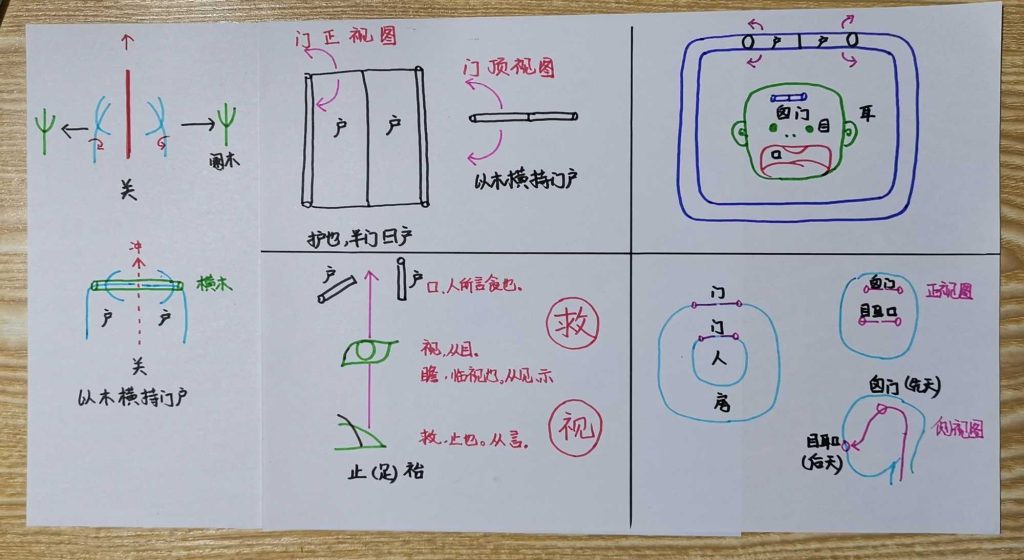 阍木
关
冲
横木
户 户
关
以木横持门户
门正视图
户 户
护也,半门曰户
门顶视图
以木横持门户
户 户
囟门
目
耳
口
户 户
口,人所言食也。
救
视,从目。
瞻,临视也。从见,示
救,止也。从言。
视
止(足)
门
门
人
房
囟门
目耳口
正视图
囟门(先天)
目耳口
(后天)
侧视图